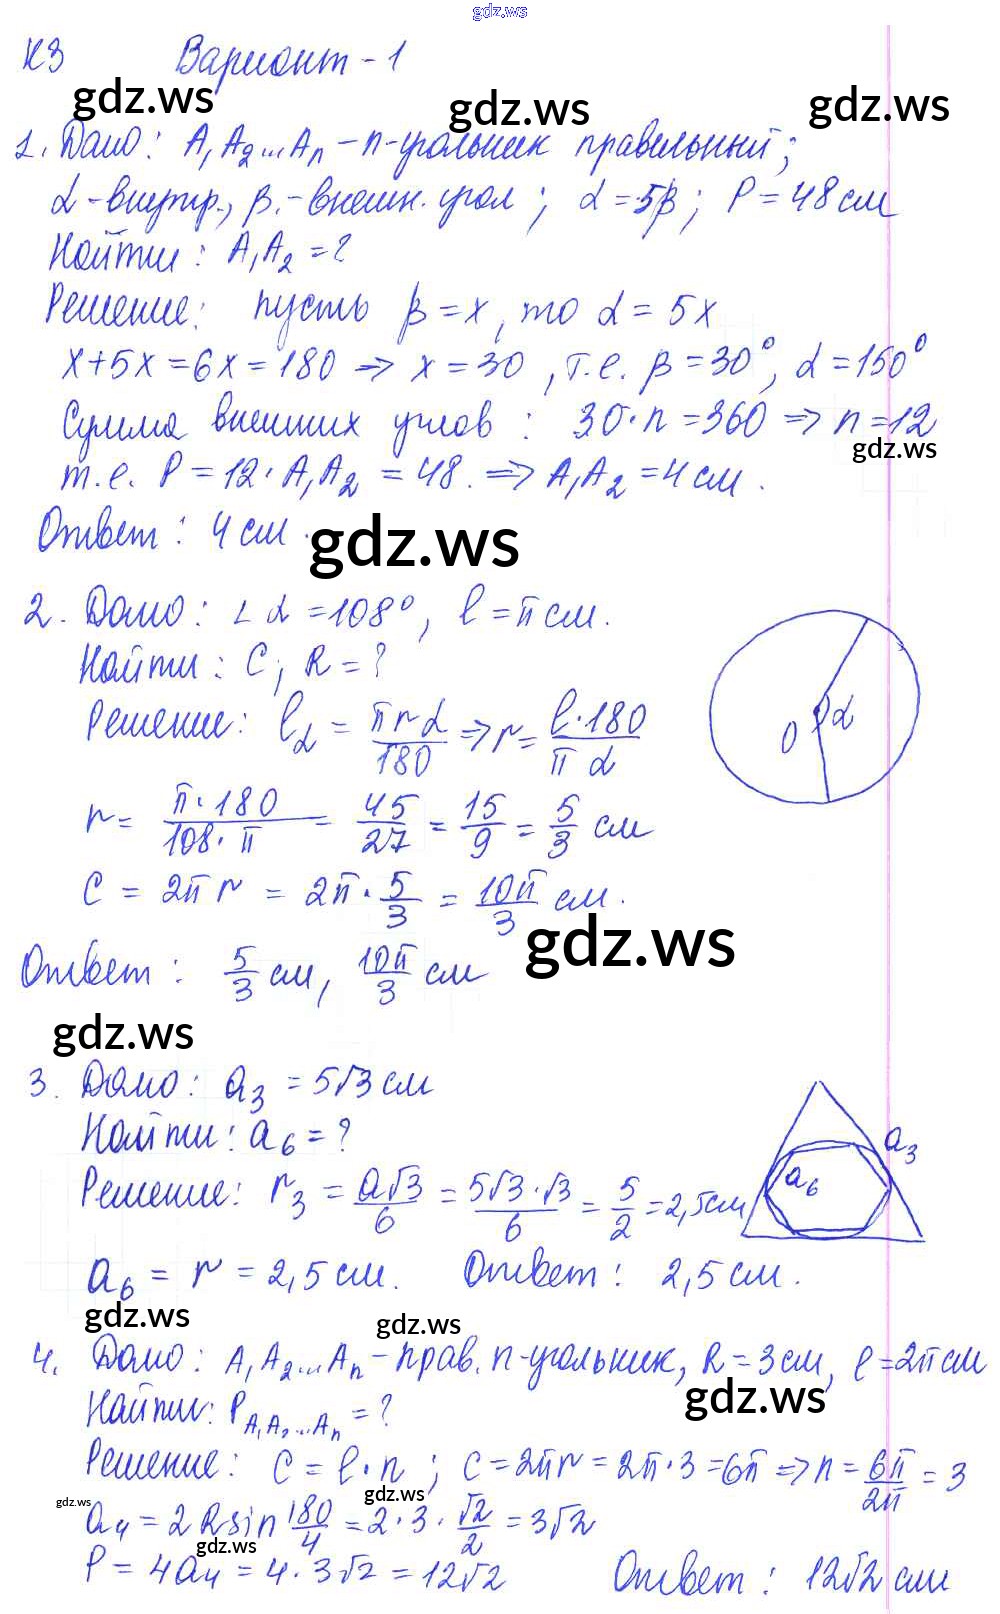 gdz.ws
К3 Вариант - 1
gdz.ws gdz.ws gdz.ws
1. Дано: A₁A₂...Aₙ - n-угольник правильный;
α - внутр., β - внешн. угол; α = 5β; P = 48 см
Найти: A₁A₂ = ?
Решение: пусть β = x, то α = 5x
x + 5x = 6x = 180 => x = 30, т.е. β = 30°, α = 150°
Сумма внешних углов: 30·n = 360 => n = 12
gdz.ws
т.е. P = 12·A₁A₂ = 48. => A₁A₂ = 4 см.
Ответ: 4 см.
gdz.ws
2. Дано: ∠α = 108°, l = π см.
Найти: C, R = ?
Решение: l_α = πrα/180 => r = l·180/π α
O α
r = π·180/108·π = 45/27 = 15/9 = 5/3 см
C = 2πr = 2π·5/3 = 10π/3 см.
gdz.ws
Ответ: 5/3 см, 10π/3 см
gdz.ws
3. Дано: a₃ = 5√3 см
Найти: a₆ = ?
a₃
a₆
Решение: r₃ = a√3/6 = 5√3·√3/6 = 5/2 = 2,5 см
a₆ = r = 2,5 см. Ответ: 2,5 см.
gdz.ws gdz.ws
4. Дано: A₁A₂...Aₙ - прав. n-угольник, R = 3 см, l = 2π см
gdz.ws
Найти: P A₁A₂...Aₙ = ?
Решение: C = l·n; C = 2πr = 2π·3 = 6π => n = 6π/2π = 3
gdz.ws gdz.ws
a₄ = 2R sin 180/4 = 2·3·√2/2 = 3√2
gdz.ws
P = 4a₄ = 4·3√2 = 12√2 Ответ: 12√2 см